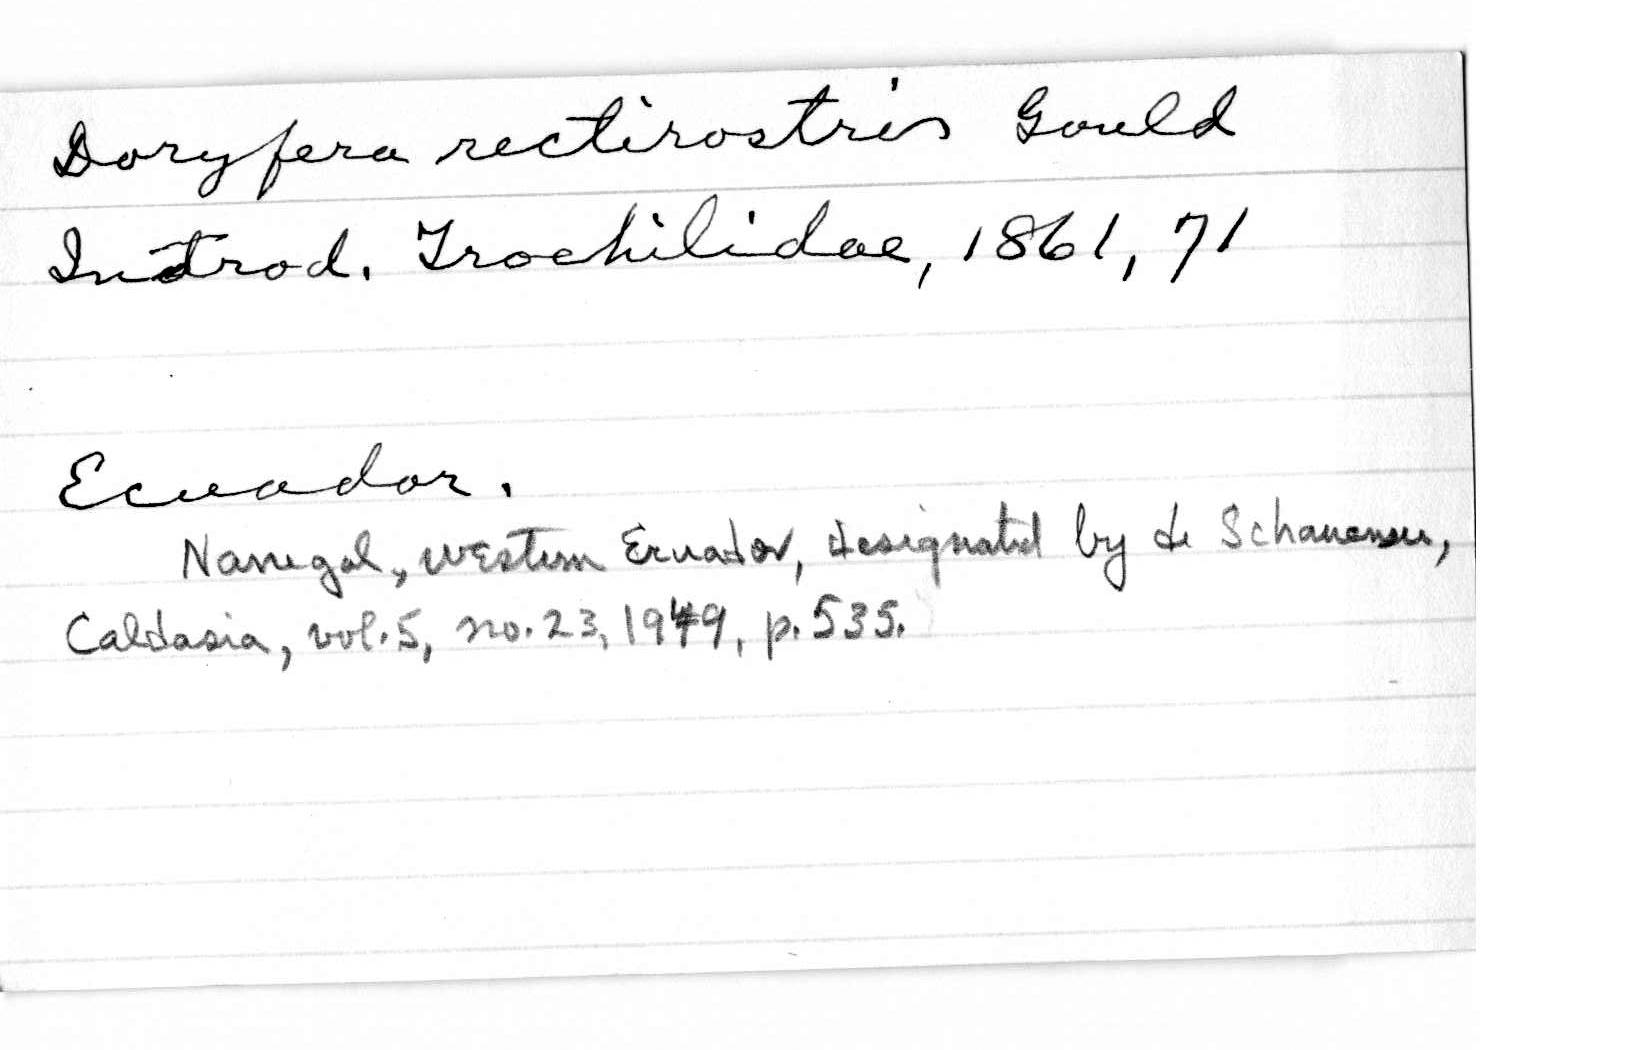 Doryfera rectirostris Gould
Introd. Trochilidae, 1861, 71
Ecuador.
Nanegal, western Ecuador, designated by de Schauensee,
Caldasia, vol. 5, no. 23, 1949, p. 535.